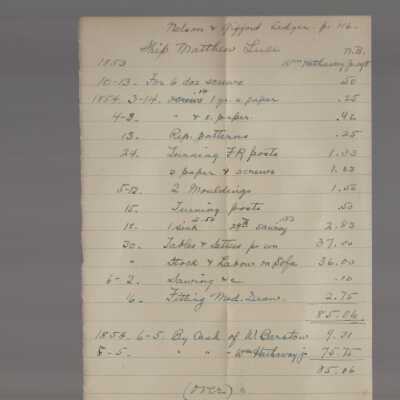 Nelson & Gifford Ledger. p. 116.
Ship Matthew Luce N.B.
1853 Wm Hathaway jr agt
10-13. For 6 doz screws .50
1854. 3-14. screws 1 yr s paper .25
4-3. " & s. paper. .92
13. Rep. patterns .25
24. Turning FR posts 1.33
s paper & screws 1.03
5-12. 2 Mouldings 1.50
15. Turning posts .50
18. 1 sink 2.50 sawing .33 2.83
30. Tables & Settees pr un 37.00
" Stock & Labour on Sofa 36.00
6-2. Sawing &c .10
6. Fitting Med. Draw. 2.75
85.06.
1854. 6-5. By Cash of W. Barstow 9.31
8-5. " " " Wm Hathaway jr 75.75
85.06
(over)